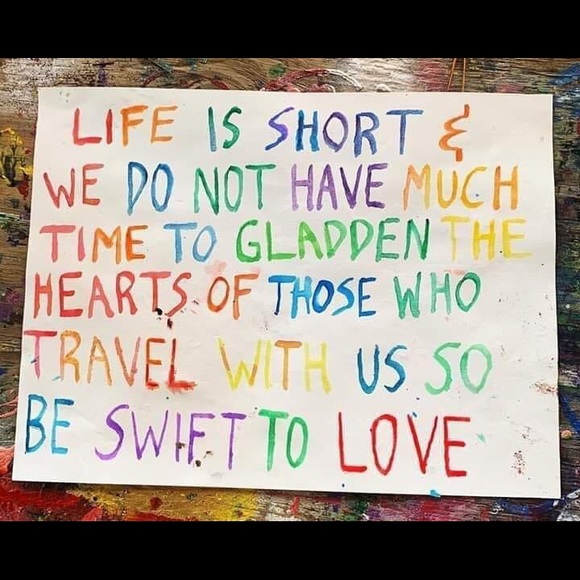 LIFE IS SHORT &
WE DO NOT HAVE MUCH
TIME TO GLADDEN THE
HEARTS OF THOSE WHO
TRAVEL WITH US SO
BE SWIFT TO LOVE